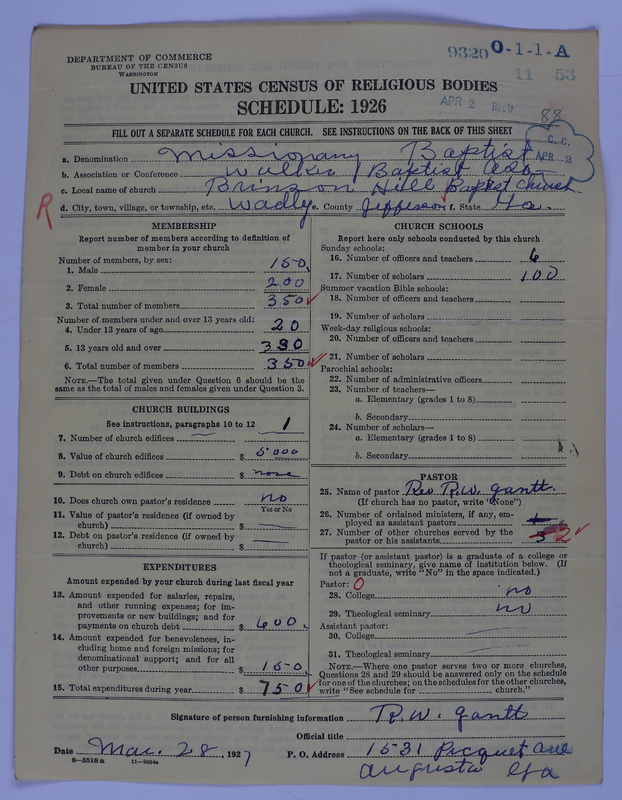 DEPARTMENT OF COMMERCE
BUREAU OF THE CENSUS
WASHINGTON
9320 O-1-1-A
11 53
UNITED STATES CENSUS OF RELIGIOUS BODIES
SCHEDULE: 1926
APR 2 Rec'd
88
FILL OUT A SEPARATE SCHEDULE FOR EACH CHURCH. SEE INSTRUCTIONS ON THE BACK OF THIS SHEET
C. C.
APR 2
a. Denomination Missionary Baptist
b. Association or Conference Walker Baptist Aso
c. Local name of church Brinson Hill Baptist Church
R
d. City, town, village, or township, etc. Wadley e. County Jefferson f. State Ga.
MEMBERSHIP
Report number of members according to definition of
member in your church
Number of members, by sex:
1. Male 150
2. Female 200
3. Total number of members 350
Number of members under and over 13 years old:
4. Under 13 years of age 20
5. 13 years old and over 330
6. Total number of members 350
NOTE.—The total given under Question 6 should be the
same as the total of males and females given under Question 3.
CHURCH BUILDINGS
See instructions, paragraphs 10 to 12 1
7. Number of church edifices
8. Value of church edifices $ 5000
9. Debt on church edifices $ none
10. Does church own pastor's residence no
Yes or No
11. Value of pastor's residence (if owned by
church) $
12. Debt on pastor's residence (if owned by
church) $
EXPENDITURES
Amount expended by your church during last fiscal year
13. Amount expended for salaries, repairs,
and other running expenses; for im-
provements or new buildings; and for
payments on church debt $ 600.
14. Amount expended for benevolences, in-
cluding home and foreign missions; for
denominational support; and for all
other purposes $ 150.
15. Total expenditures during year $ 750
CHURCH SCHOOLS
Report here only schools conducted by this church
Sunday schools:
16. Number of officers and teachers 6
17. Number of scholars 100
Summer vacation Bible schools:
18. Number of officers and teachers
19. Number of scholars
Week-day religious schools:
20. Number of officers and teachers
21. Number of scholars
Parochial schools:
22. Number of administrative officers
23. Number of teachers—
a. Elementary (grades 1 to 8)
b. Secondary
24. Number of scholars—
a. Elementary (grades 1 to 8)
b. Secondary
PASTOR
25. Name of pastor Rev R.W. Gantt.
(If church has no pastor, write "None")
26. Number of ordained ministers, if any, em-
ployed as assistant pastors
27. Number of other churches served by the
pastor or his assistants 2
If pastor (or assistant pastor) is a graduate of a college or
theological seminary, give name of institution below. (If
not a graduate, write "No" in the space indicated.)
Pastor: O
28. College no
29. Theological seminary no
Assistant pastor:
30. College
31. Theological seminary
NOTE.—Where one pastor serves two or more churches,
Questions 28 and 29 should be answered only on the schedule
for one of the churches; on the schedules for the other churches,
write "See schedule for church."
Signature of person furnishing information R.W. Gantt
Official title
Date Mar. 28, 1927 P. O. Address 1531 Picquet Ave
8—5518a 11—9054a
Augusta Ga